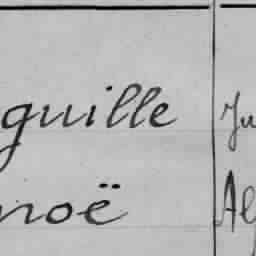 guille Ju
noë Al